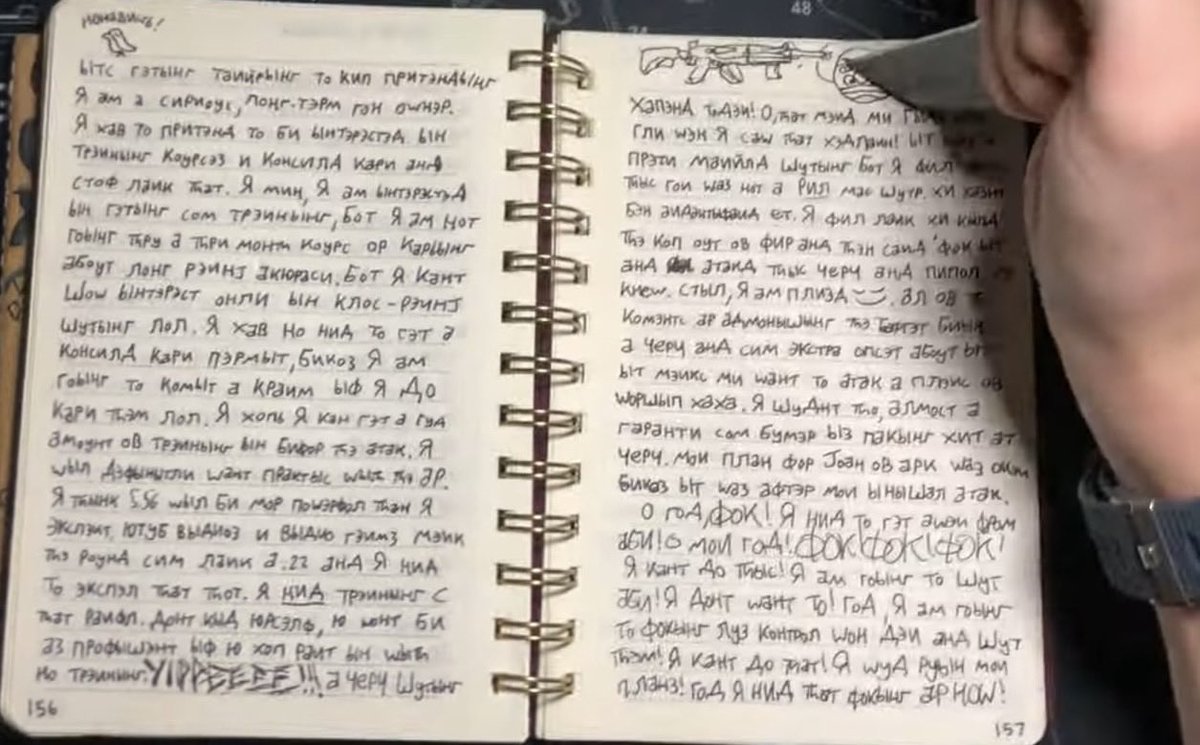 НЭНАВИЧЬ!
ЫТС ГЭТЫНГ ТАЙЙРЫНГ ТО КИП ПРИТЭНДЫНГ
Я АМ А СИРИОУС, ЛОНГ-ТЭРМ ГАН ОWНЭР.
Я ХАВ ТО ПРИТЭНД ТО БИ ЫНТЭРЭСТЭД ЫН
ТРЭЙНЫНГ КОУРСЭЗ И КОНСИЛД КАРИ АНД
СТОФ ЛАИК ТҺАТ. Я МИН, Я АМ ЫНТЭРЭСТЭД
ЫН ГЭТЫНГ СОМ ТРЭЙНЫНГ, БОТ Я АМ НОТ
ГОЫНГ ТҺРУ А ТҺРИ МОНТҺ КОУРС ОР КАРЫЫНГ
АБОУТ ЛОНГ РЭИНЈ АКЮРАСИ. БОТ Я КАНТ
ШОW ЫНТЭРЭСТ ОНЛИ ЫН КЛОС-РЭИНЈ
ШУТЫНГ ЛОЛ. Я ХАВ НО НИД ТО ГЭТ А
КОНСИЛД КАРИ ПЭРМЫТ, БИКОЗ Я АМ
ГОЫНГ ТО КОМЫТ А КРАИМ ЫФ Я ДО
КАРИ ТҺЭМ ЛОЛ. Я ХОПЬ Я КАН ГЭТ А ГУД
АМОУНТ ОВ ТРЭЙНЫНГ ЫН БИФОР ТҺЭ АТАК. Я
WЫЛ ДЭФЫНЫТЛИ WАНТ ПРАКТЫС WЫТҺ ТҺЭ АР.
Я ТҺЫНК 5.56 WЫЛ БИ МОР ПОWЭРФОЛ ТҺАН Я
ЭКСПЭКТ. ЮТУБ ВЫДИОЗ И ВЫДИО ГЭИМЗ МЭИК
ТҺЭ РОУНД СИМ ЛАИК А .22 АНД Я НИД
ТО ЭКСПЭЛ ТҺАТ ТҺОТ. Я НИД ТРЭЙНЫНГ С
ТҺАТ РАИФЛ. ДОНТ КЫД ЮРСЭЛФ, Ю WОНТ БИ
АЗ ПРОФЫШЭНТ ЫФ Ю ХОП РАИТ ЫН WЫТҺ
НО ТРЭЙНЫНГ. YIPPEEEE!!! А ЧЕРЧ ШУТЫНГ
156
ХАПЭНД ТОДЭИ! О, ТҺАТ МЭИД МИ
ГЛИ WЭН Я САW ТҺАТ ХЭДЛАИН! ЫТ
ПРЭТИ МАИЙЛД ШУТЫНГ БОТ Я ФИЛ
ТҺЫС ГОИ WАЗ НОТ А РИЛ МАС ШУТР. ХИ ХАЗНТ
БЭН АИДЭНТЫФАИД ЕТ. Я ФИЛ ЛАИК ХИ КИЛД
ТҺЭ КОП ОУТ ОВ ФИР АНД ТҺЭН САИД 'ФОК ЫТ
АНД АТАКД ТҺЫС ЧЕРЧ АНД ПИПОЛ
КНЕW. СТЫЛ, Я АМ ПЛИЗД АЛ ОВ
КОМЭНТС АР АДМОНЫШЫНГ ТҺЭ ТАРГЭТ БИЫН
А ЧЕРЧ АНД СИМ ЭКСТРА ОПСЭТ АБОУТ ЫТ
ЫТ МЭИКС МИ WАНТ ТО АТАК А ПЛЭИС ОВ
WОРШЫП ХАХА. Я ШУДНТ ТҺО, АЛМОСТ А
ГАРАНТИ СОМ БУМЭР ЫЗ ПАКЫНГ ХИТ АТ
ЧЕРЧ. МОИ ПЛАН ФОР ЈОАН ОВ АРК WАЗ
БИКОЗ ЫТ WАЗ АФТЭР МОИ ЫНЫШАЛ АТАК.
О ГОД, ФОК! Я НИД ТО ГЭТ АWЭИ ФРОМ
АБИ! О МОИ ГОД! ФОК! ФОК! ФОК!
Я КАНТ ДО ТҺЫС! Я АМ ГОЫНГ ТО ШУТ
АБИ! Я ДОНТ WАНТ ТО! ГОД, Я АМ ГОЫНГ
ТО ФОКЫНГ ЛУЗ КОНТРОЛ WОН ДЭИ АНД ШУТ
ТҺЭМ! Я КАНТ ДО ТҺАТ! Я WУД РУЫН МОИ
ПЛАНЗ! ГОД Я НИД ТҺАТ ФОКЫНГ АР НОW!
157